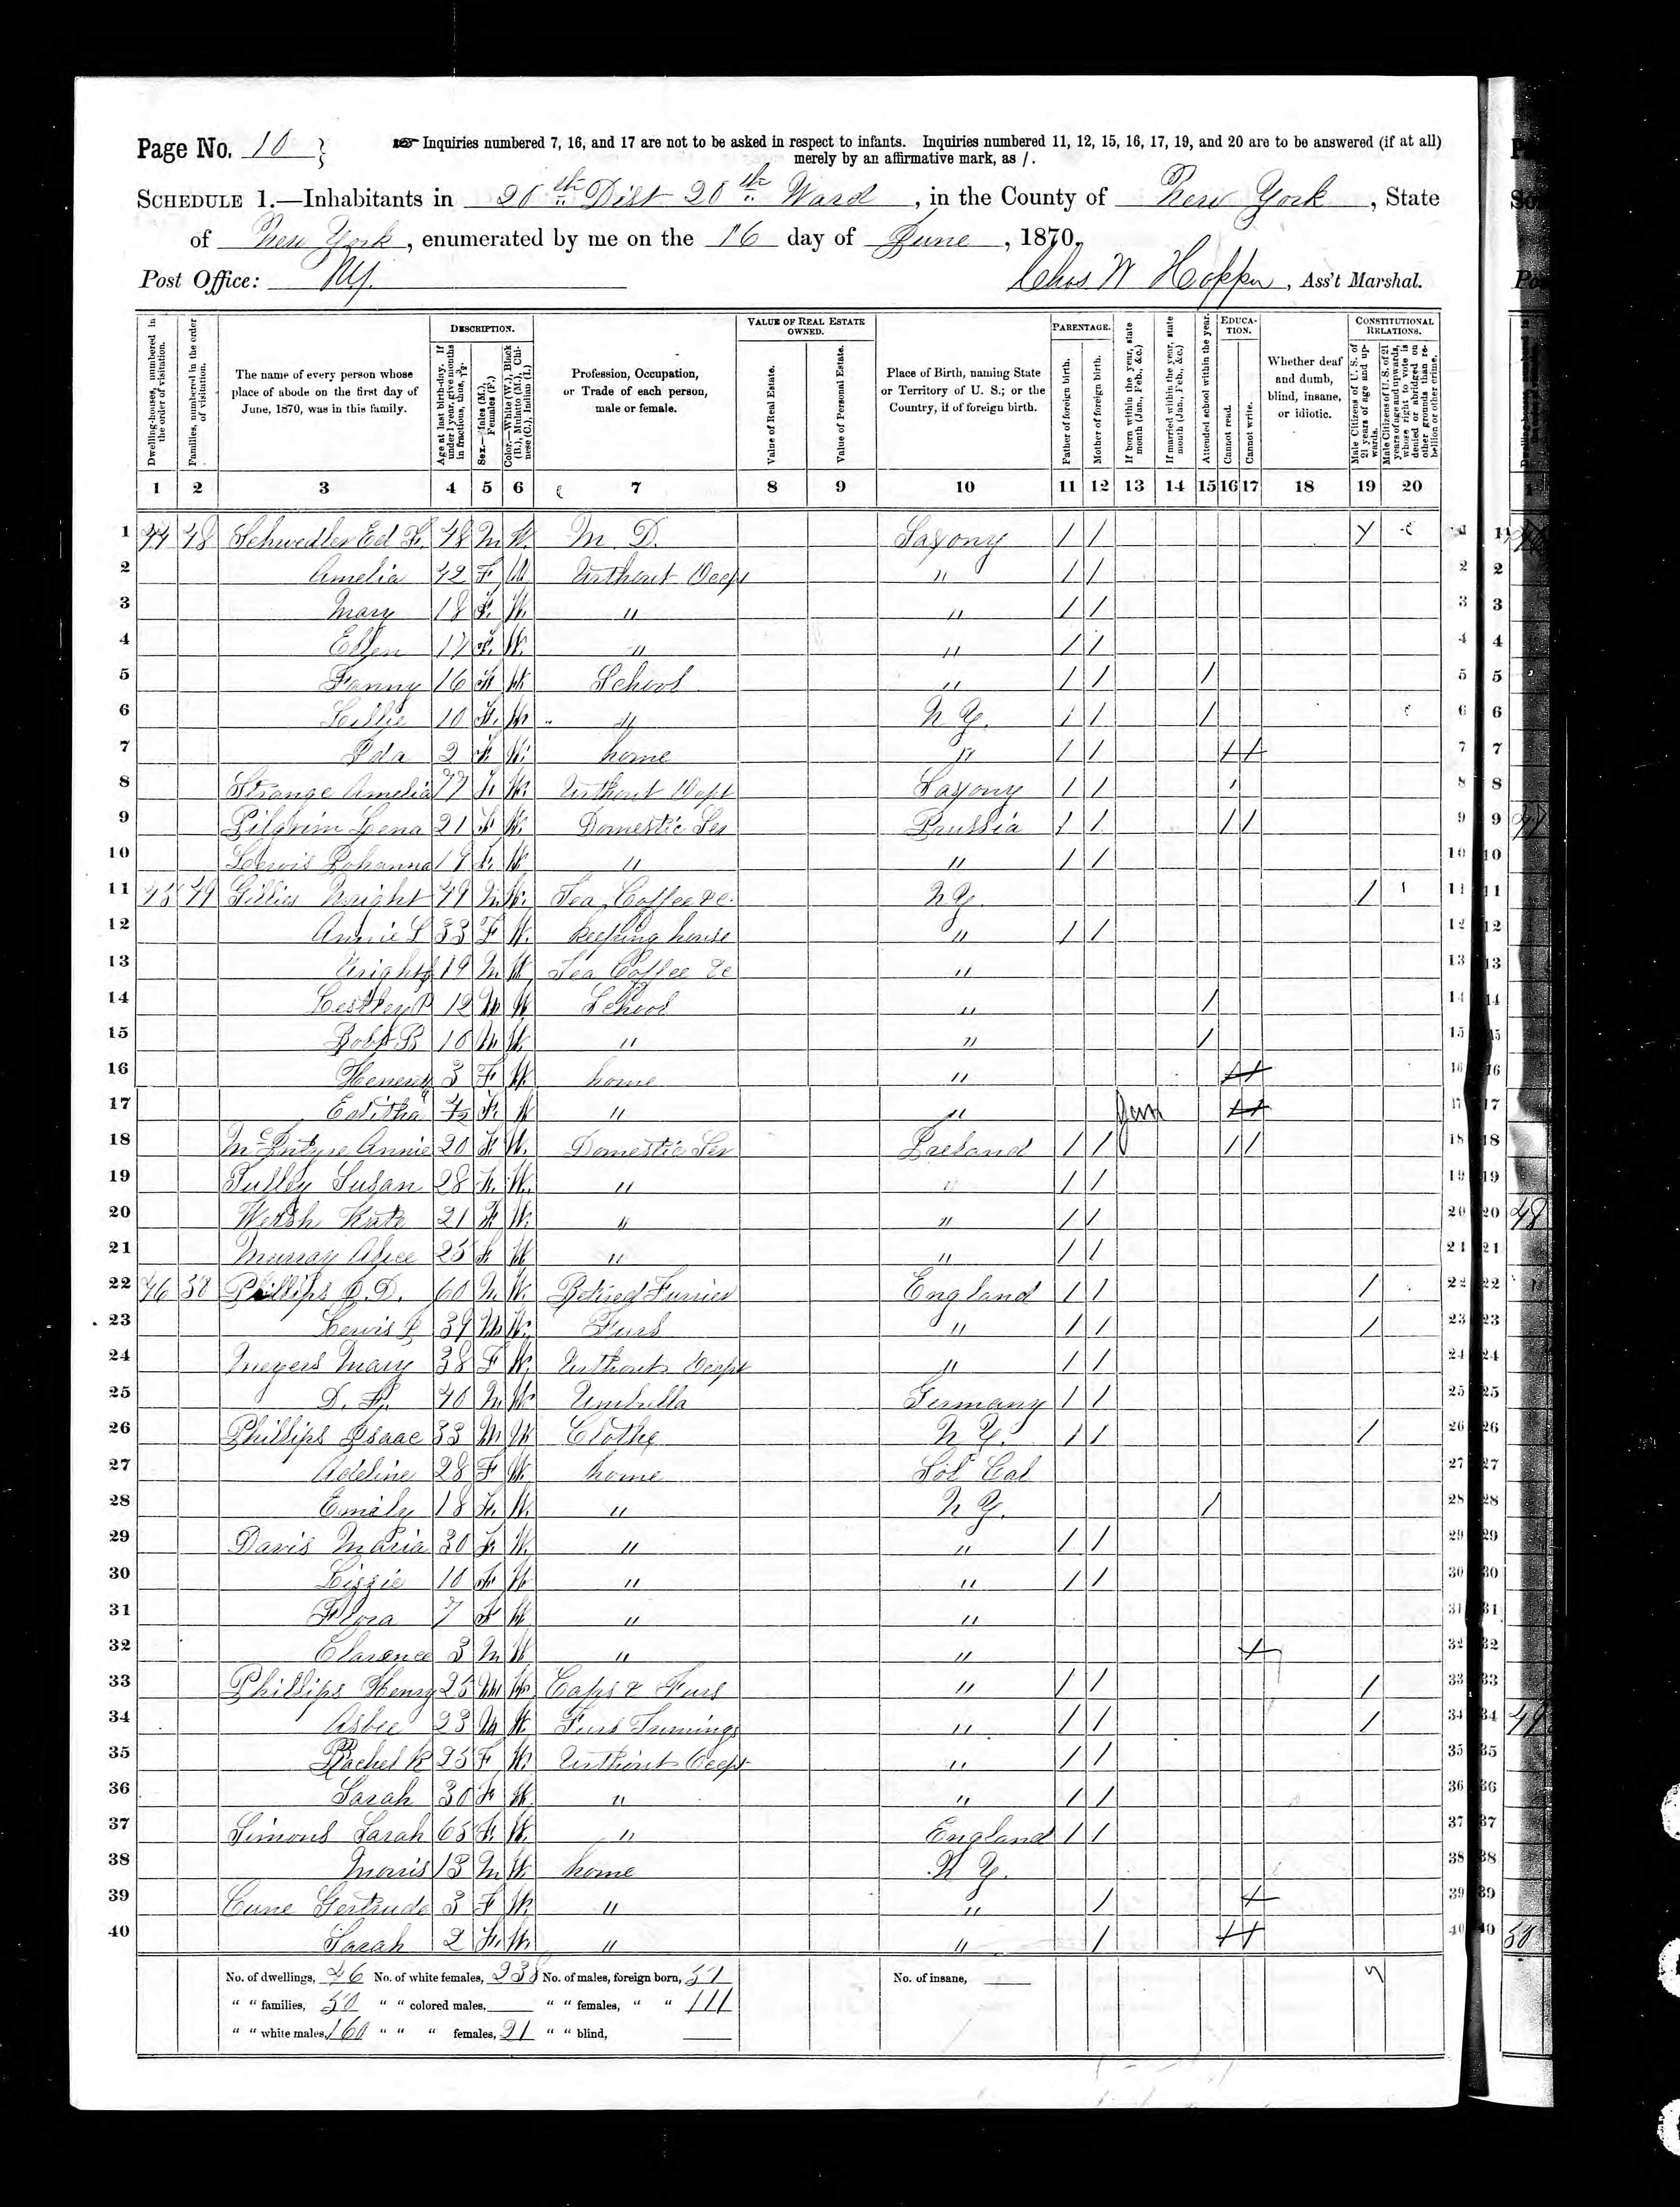 Page No. 10
Inquiries numbered 7, 16, and 17 are not to be asked in respect to infants. Inquiries numbered 11, 12, 15, 16, 17, 19, and 20 are to be answered (if at all)
merely by an affirmative mark, as /.
SCHEDULE 1.—Inhabitants in 20th Dist 20th Ward, in the County of New York, State
of New York, enumerated by me on the 16 day of June, 1870.
Post Office: NY. Chas W Hopper, Ass't Marshal.
Dwelling-houses, numbered in the order of visitation.
Families, numbered in the order of visitation.
The name of every person whose place of abode on the first day of June, 1870, was in this family.
DESCRIPTION.
Age at last birth-day. If under 1 year, give months in fractions, thus, 3/12.
Sex.—Males (M.), Females (F.)
Color.—White (W.), Black (B.), Mulatto (M.), Chinese (C.), Indian (I.)
Profession, Occupation, or Trade of each person, male or female.
VALUE OF REAL ESTATE OWNED.
Value of Real Estate.
Value of Personal Estate.
Place of Birth, naming State or Territory of U. S.; or the Country, if of foreign birth.
PARENTAGE.
Father of foreign birth.
Mother of foreign birth.
If born within the year, state month (Jan., Feb., &c.)
If married within the year, state month (Jan., Feb., &c.)
Attended school within the year.
EDUCATION.
Cannot read.
Cannot write.
Whether deaf and dumb, blind, insane, or idiotic.
CONSTITUTIONAL RELATIONS.
Male Citizens of U. S. of 21 years of age and upwards.
Male Citizens of U. S. of 21 years of age and upwards, whose right to vote is denied or abridged on other grounds than rebellion or other crime.
1 2 3 4 5 6 7 8 9 10 11 12 13 14 15 16 17 18 19 20
1 44 48 Schwedler Ed F. 48 M W. M. D. Saxony / / / 1
2 Amelia 42 F W Without Occp " / / 2
3 Mary 18 F. W. " " / / 3
4 Ellen 17 F. W. " " / / 4
5 Fanny 16 F W School " / / / 5
6 Lillie 10 F. W " N Y. / / / 6
7 Ida 2 F W. home " / / 7
8 Strange Amelia 77 F. W. Without Occpt Saxony / / / 8
9 Pilgrim Lena 21 F W. Domestic Ser Prussia / / / / 9
10 Lewis Johanna F. W " " / / 10
11 45 49 Gillies Wright 49 M W. Tea, Coffee &c. N Y. / / 11
12 Annie S 33 F W. Keeping house " / / 12
13 Wright 19 M W Tea Coffee &c " 13
14 12 M W. School " / 14
15 Robt B 10 M W. " " / 15
16 3 F W. home " 16
17 F. W " " Jan 17
18 McIntyre Annie 20 F. W. Domestic Ser Ireland / / / / 18
19 Tulley Susan 28 F. W. " " / / 19
20 Welsh Kate 21 F W. " " / / 20
21 Murray Alice 25 F. W " " / / 21
22 46 50 Phillips I. D. 60 M. W. Retired Furrier England / / / 22
23 Lewis J 39 M W. Furs " / / / 23
24 Meyers Mary 38 F W. Without Occpt " / / 24
25 40 M. W. Umbrella Germany / / 25
26 Phillips Isaac 33 M W Clothg N Y. / / / 26
27 Adeline 28 F W. home Cal 27
28 Emily 18 F. W. " N Y. / 28
29 Davis Maria 30 F. W. " " / / 29
30 Lizzie 10 F W " " / / 30
31 Flora 7 F W " " 31
32 Clarence 3 M W. " " 32
33 Phillips Henry 25 M W. Caps & Furs " / / / 33
34 Asbee 23 M W. Furs Trimings " / / / 34
35 Rachel R 25 F W. Without Occpt " / / 35
36 Sarah 30 F W. " " / / 36
37 Simons Sarah 65 F. W. " England / / 37
38 Morris 13 M W. home N Y. 38
39 Cune Gertrude 3 F W. " " / 39
40 Sarah 2 F. W. " " / 40
No. of dwellings, 46 No. of white females, 238 No. of males, foreign born, 57 No. of insane,
" " families, 50 " " colored males, " " females, " " 111
" " white males, 160 " " " females, 21 " " blind,